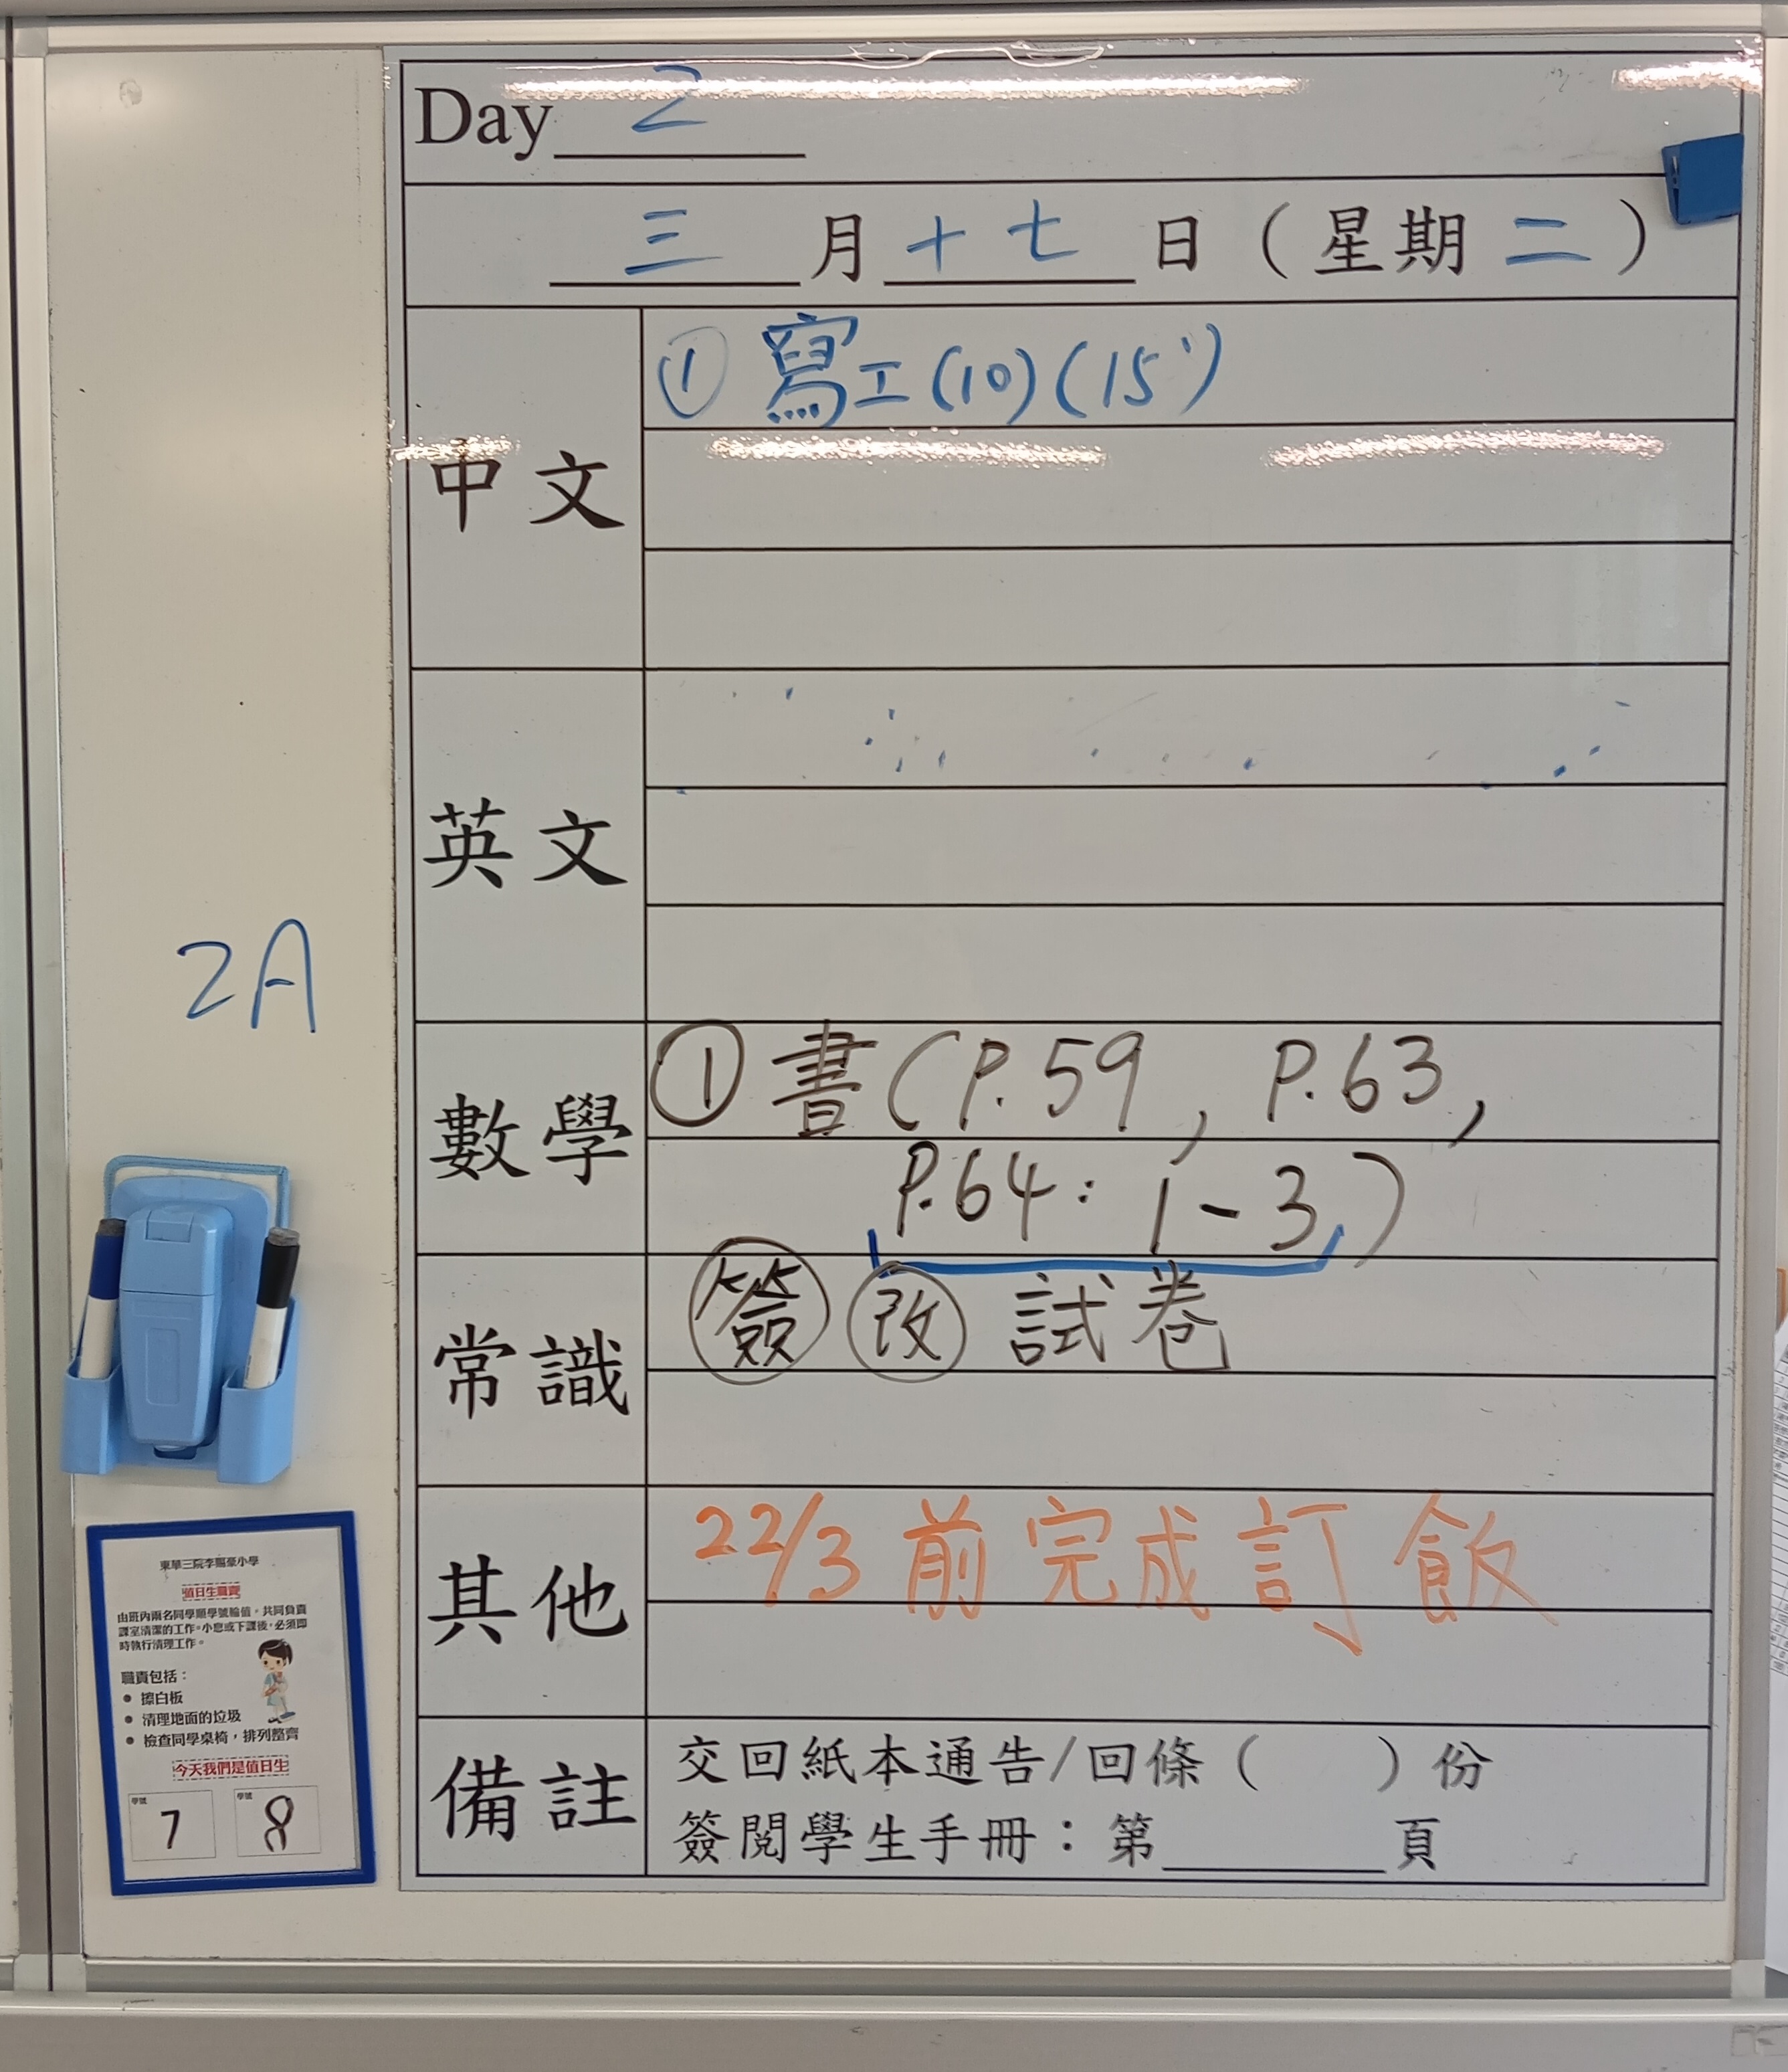 Day 2
三月十七日（星期二）
中文
① 寫工(10)(15')
英文
2A
數學
① 書(P.59, P.63,
P.64: 1-3)
常識
簽 改 試卷
其他
22/3 前完成訂飯
備註
交回紙本通告/回條（　　）份
簽閱學生手冊：第______頁
東華三院李賜豪小學
值日生職責
由班內兩名同學順學號輪值，共同負責
課室清潔的工作。小息或下課後，必須即
時執行清理工作。
職責包括：
• 擦白板
• 清理地面的垃圾
• 檢查同學桌椅，排列整齊
今天我們是值日生
學號 學號
7 8